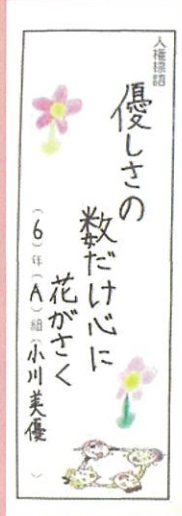 人権標語
優しさの
数だけ心に
花がさく
（6）年（A）組（小川美優）